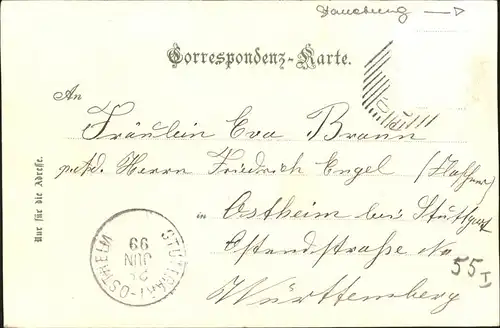 Correspondenz-Karte.
An
Fräulein Eva Braun
p.Ad. Herrn Friedrich Engel
in Ostheim bei Stuttgart
Ostendstraße No
55 I
Württemberg
Nur für die Adresse.
STUTTGART-OSTHEIM
JUN
99